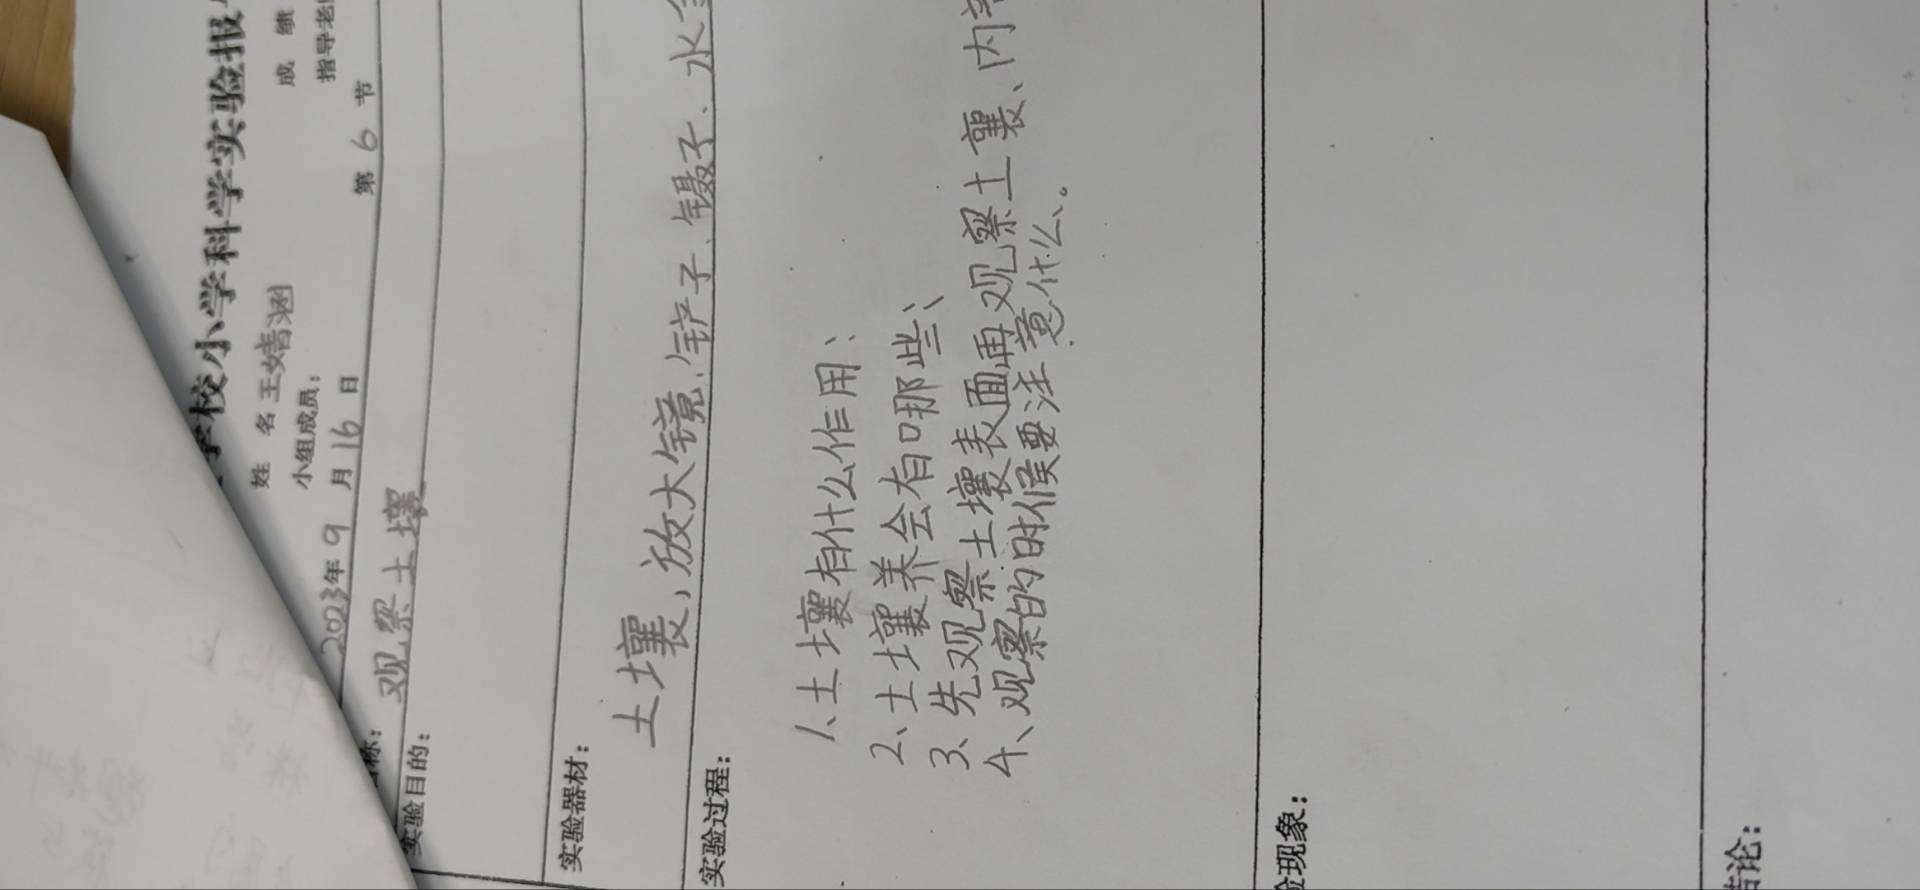 学校小学科学实验报
姓 名 王婧涵 成 绩
小组成员： 指导老
2023年9月16日 第6节
称： 观察土壤
实验目的：
实验器材：
土壤，放大镜、铲子、镊子、水
实验过程：
1、土壤有什么作用：
2、土壤养会有哪些、
3、先观察土壤表面再观察土襄、内
4、观察的时候要注意什么。
验现象：
结论：